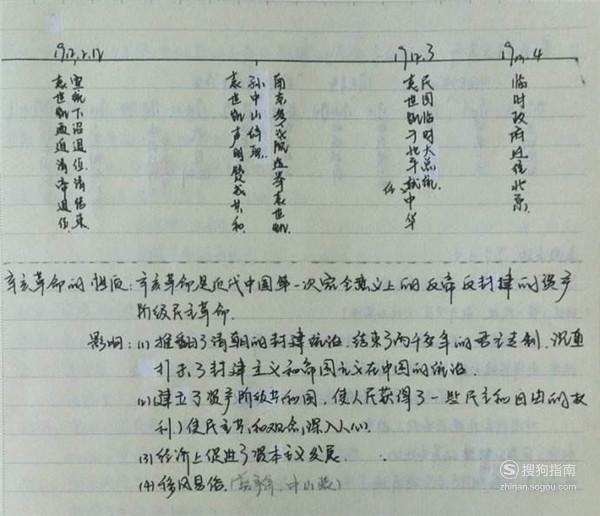 1912.2.12
1912.3
1912.4
宣统下诏退位.清结束
袁世凯逼迫清帝退位.
南京参议院选举袁世凯
孙中山辞职.
袁世凯声明赞成共和
民国临时大总统.
袁世凯于北平就中华
任
临时政府迁往北京.
辛亥革命的性质:辛亥革命是近代中国第一次完全意义上的反帝反封建的资产
阶级民主革命.
影响:(1)推翻了清朝的封建统治.结束了两千多年的君主专制.沉重
打击了封建主义和帝国主义在中国的统治
(2)建立了资产阶级共和国,使人民获得了一些民主和自由的权
利)使民主共和观念深入人心.
(3)经济上促进了资本主义发展.
(4)移风易俗.(中山装)
搜狗指南
zhinan.sogou.com